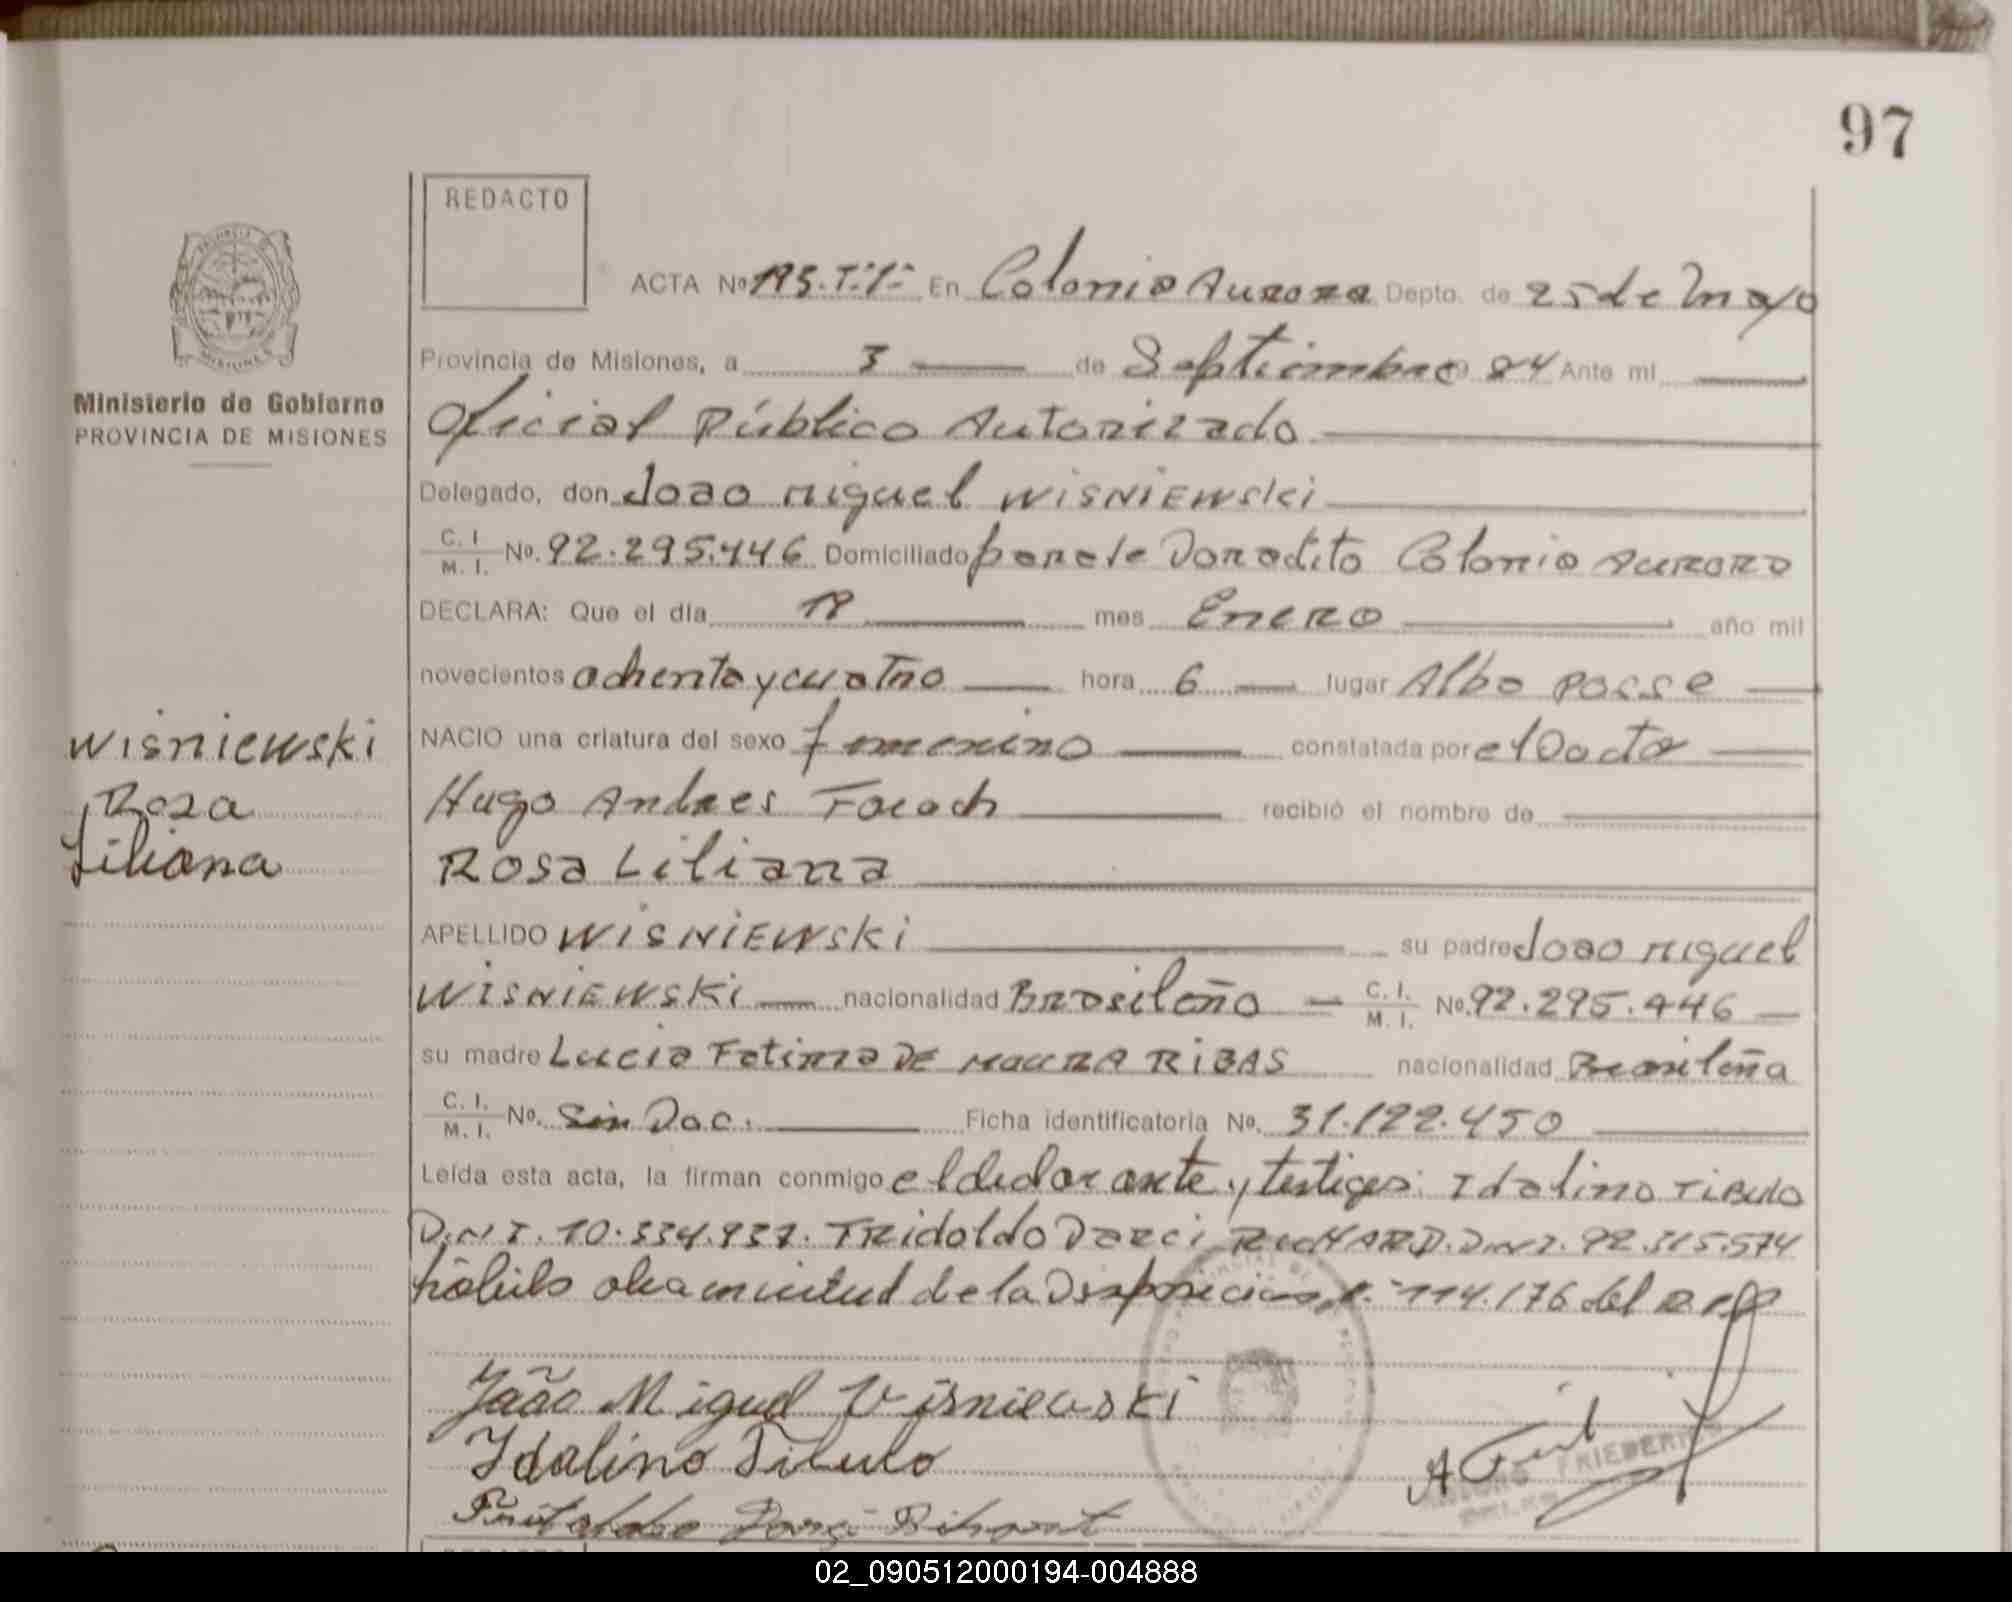 97
REDACTO
ACTA Nº 195. T:1:- En Colonia Aurora Depto. de 25 de Mayo
Provincia de Misiones, a 3 de Septiembre 84 Ante mi
Ministerio de Gobierno
PROVINCIA DE MISIONES
Oficial Público Autorizado
Delegado, don Joao Miguel WISNIEWSKI
C. I. M. I. No. 92.295.446 Domiciliado Doradito Colonia Aurora
DECLARA: Que el día 18 mes Enero año mil
novecientos ochenta y cuatro hora 6 lugar Alba Posse
Wisniewski
Rosa
Liliana
NACIO una criatura del sexo femenino constatada por el Doctor
Hugo Andres recibió el nombre de
Rosa Liliana
APELLIDO WISNIEWSKI su padre Joao Miguel
WISNIEWSKI nacionalidad Brasileño C. I. M. I. No. 92.295.446
su madre Lucia Fatima DE MOURA RIBAS nacionalidad Brasileña
C. I. M. I. No. Sin Doc. Ficha identificatoria No. 31.122.450
Leída esta acta, la firman conmigo el declarante y testigos: Idalino TIBULO
D.N.I. 10.334.937. TRidoldo Darci RICHARD. D.N.I. 92.315.574
de la Disposición 114.176 del
João Miguel Visnieuski
Idalino Tibulo
FRIEDERI
02_090512000194-004888